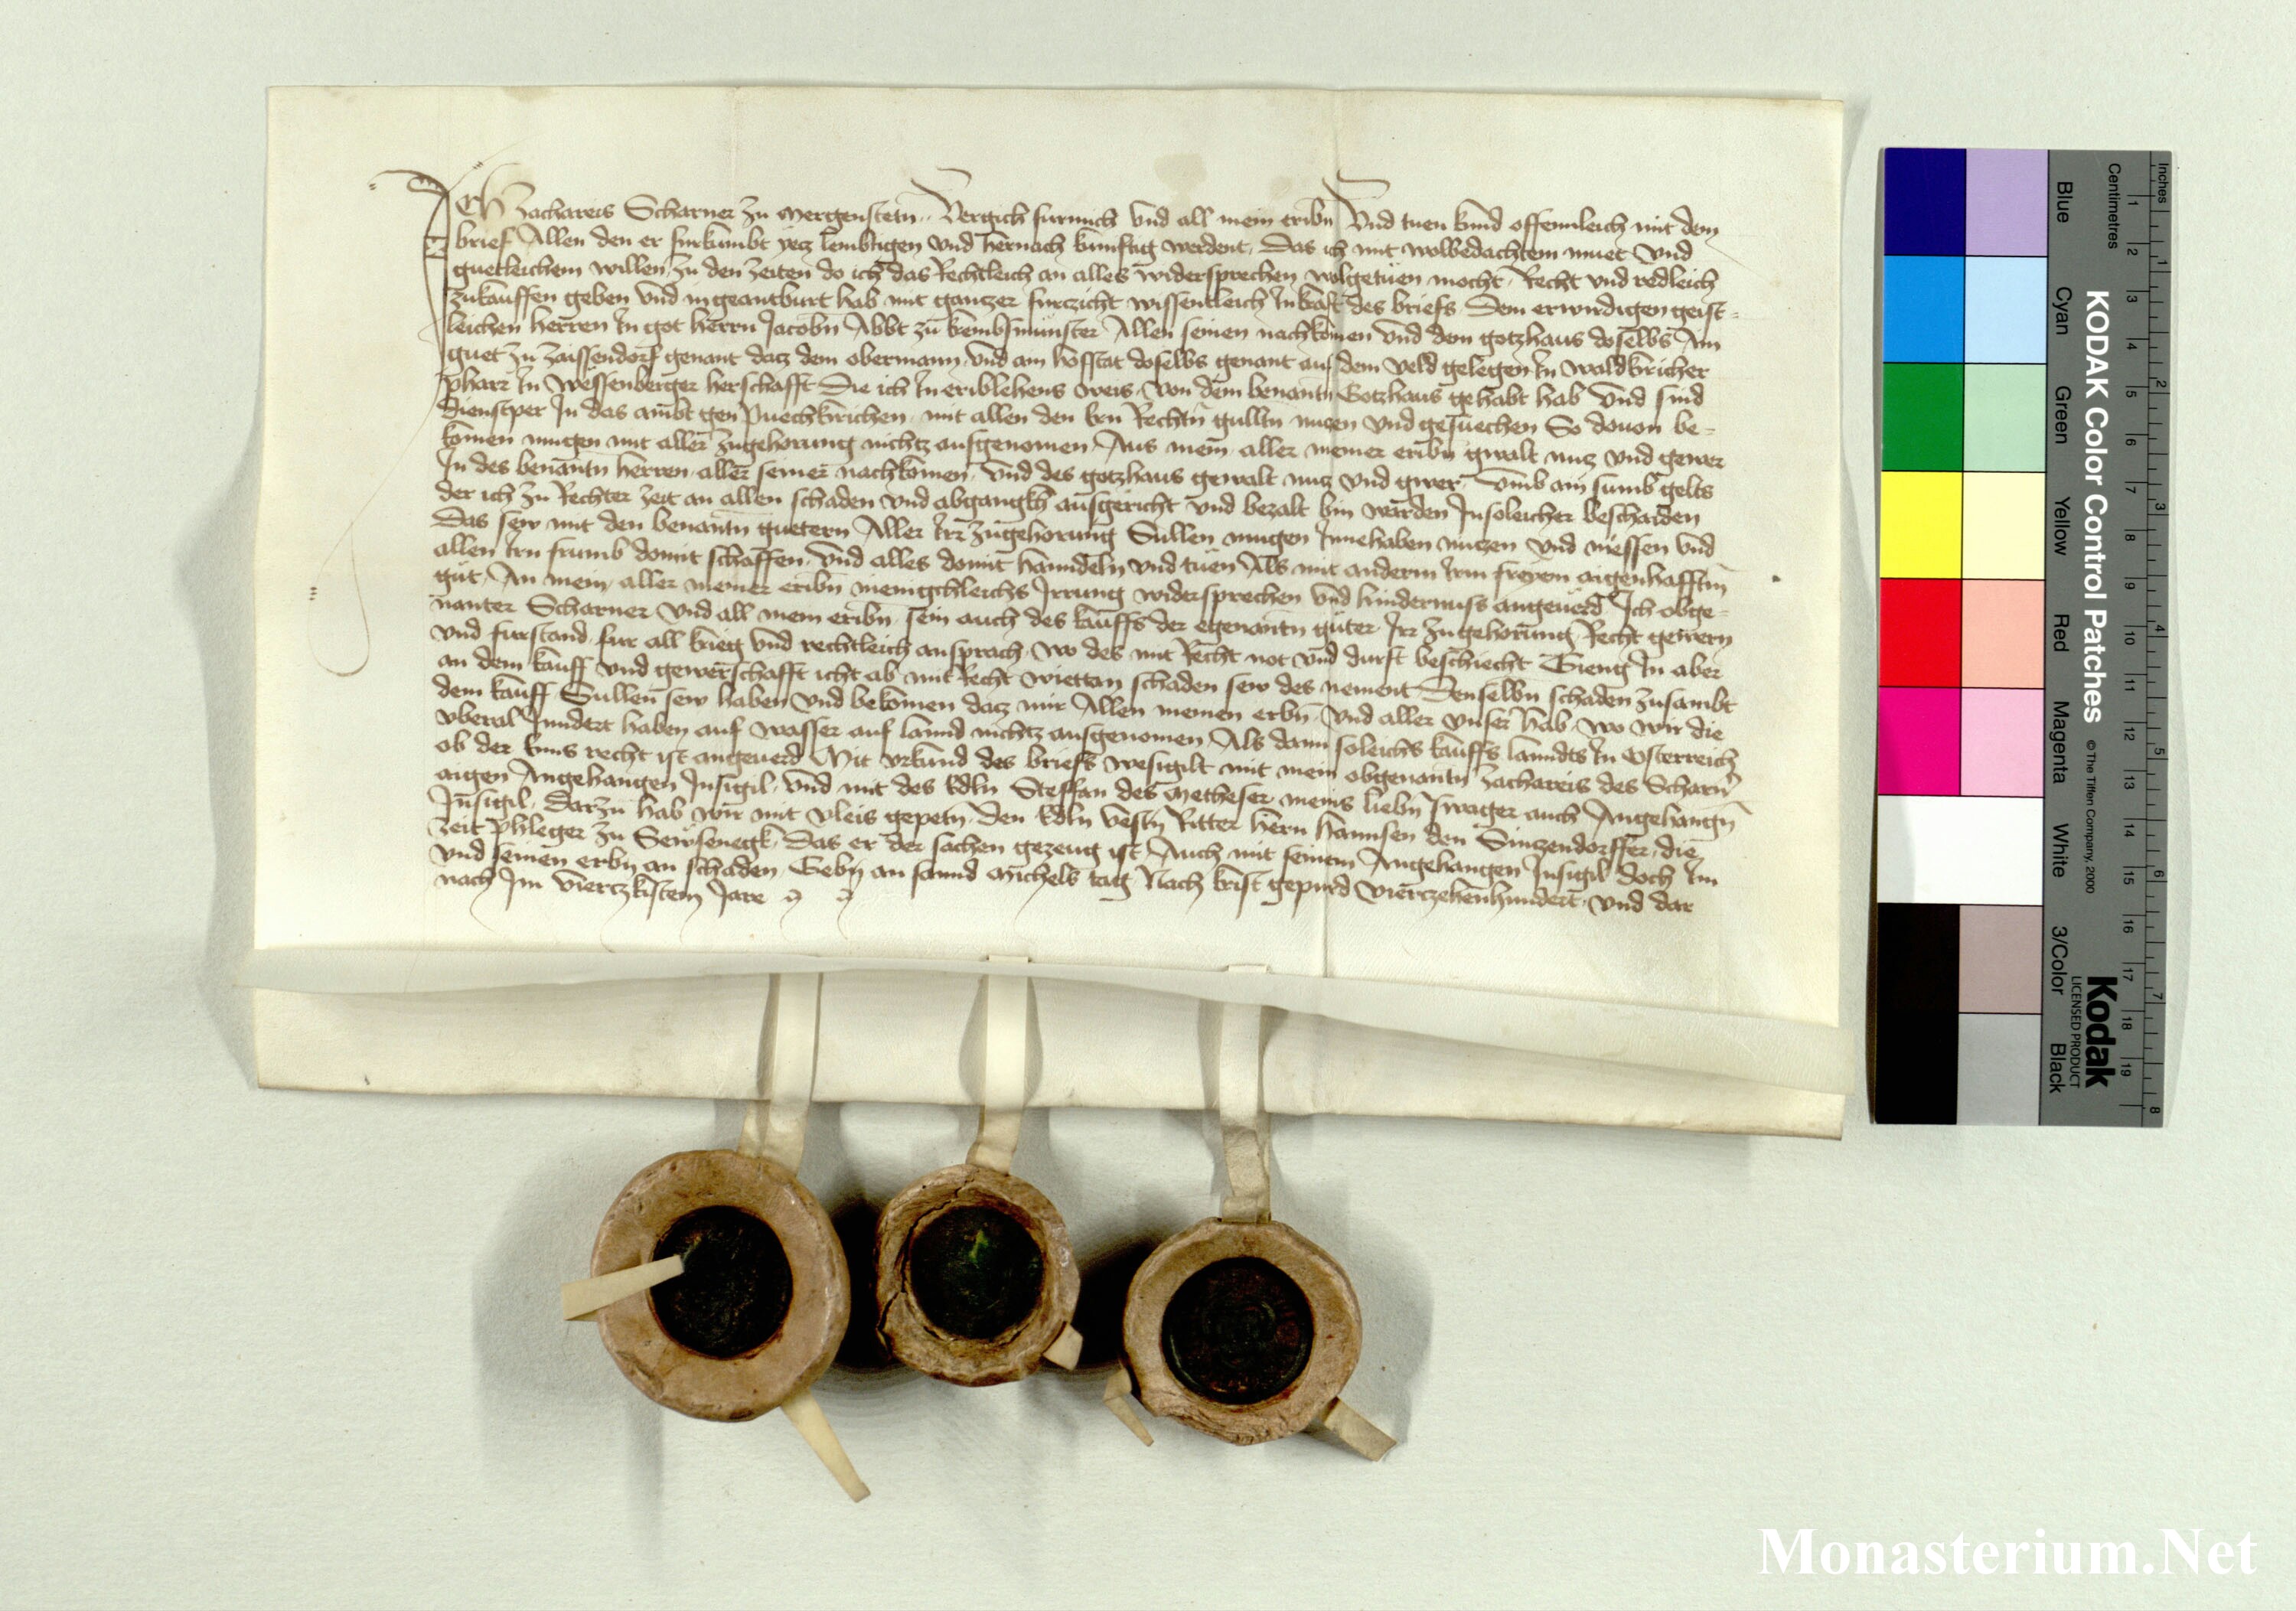 Ich Zachareis Scharner zu Mergenstein Vergich fur mich vnd all mein eribn Vnd tuen kund offennleich mit dem
brief Allen den er furkumbt yecz lembtigen vnd hernach kunftig werdent Das ich mit wolbedachtem muet vnd
guetleichem willen zu den zeiten do ich das Rechtleich an alles widersprechen wolgetuen mocht Recht vnd redleich
zukauffen geben vnd ingeantburt hab mit ganczer furczicht wissentleich In kraft des briefs Dem erwirdigen geist=
leichen herren In got herrn Jacobn Abbt zu krembsmunster Allen seinen nachkomen vnd dem gotzhaus doselbs Am
guet zu zaissendorf genant dacz dem obermann vnd am hofstat doselbs genant auf dem veld gelegen In waldkiricher
pharr In Wessenberger herschafft Die ich In eriblehens weis von dem benantn Gotzhaus gehabt hab vnd sind
dienstper In das ambt gen Puechkirichen mit allen den ern Rechtn gulltn nuczen vnd gesuechen So douon be=
komen mugen mit aller zugehorung nichtz ausgenomen Aus mein aller meiner eribn gwalt nucz vnd gewer
In des benantn herren aller seiner nachkomen vnd des gotzhaus gewalt nucz vnd gwer vmb ain sumb gelts
der ich zu Rechter zeit an allen schaden vnd abgangkh ausgericht vnd bezalt bin warden Insoleicher beschaiden
Das sew mit den benantn guetern Aller Irr zugehorung Sullen mugen Innehaben nutzen vnd niessen vnd
allen Irn frumb domit schaffen vnd alles domit hanndeln vnd tuen Als mit anderm Irm freyem aigenhafftm
gut An mein aller meiner eribn menigchleichs Irrung widersprechen vnd hindernuss angeuerd Ich obge=
nanter Scharner vnd all mein eribn sein auch des kauffs der egenantn guter Irr zugehorung Recht gewern
vnd furstand fur all krieg vnd rechtleich ansprach wo des mit Recht not vnd durft beschiecht Gieng In aber
an dem kauff vnd gewerschafft icht ab mit Recht wiettan schaden sew des nement Denselbn schaden zusambt
dem kauff Sullen sew haben vnd bekomen dacz mir Allen meinen erbn vnd aller vnser hab wo wir die
vberal Inndert haben auf wasser auf lannd nichtz ausgenomen Als dann soleichs kauffs lanndts In Osterreich
ob der Enns recht ist angeuerd Mit vrkund des briefs wesigilt mit mein obgenantn Zachareis des Scharner
aigen Angehangen Insigil vnd mit des Edln Steffan des Metheser meins liebn swager auch Angehangn
Insigil Darzu hab wir mit vleis gepetn den Edln vestn Ritter hern Hannsen den Sinzendorffer die
zeit phleger zu Sewsenegk Das er der sachen gezeug ist Auch mit seinem Angehangen Insigil doch Im
vnd seinen erbn an schaden Gebn an sannd Michels tag Nach krist gepurd vierczehenhundert vnd dar
nach Im vierczkistem Jare
KODAK Color Control Patches © The Tiffen Company, 2000
Kodak
LICENSED PRODUCT
Blue Cyan Green Yellow Red Magenta White 3/Color Black
Centimetres 1 2 3 4 5 6 7 8 9 10 11 12 13 14 15 16 17 18 19
Inches 1 2 3 4 5 6 7 8
Monasterium.Net